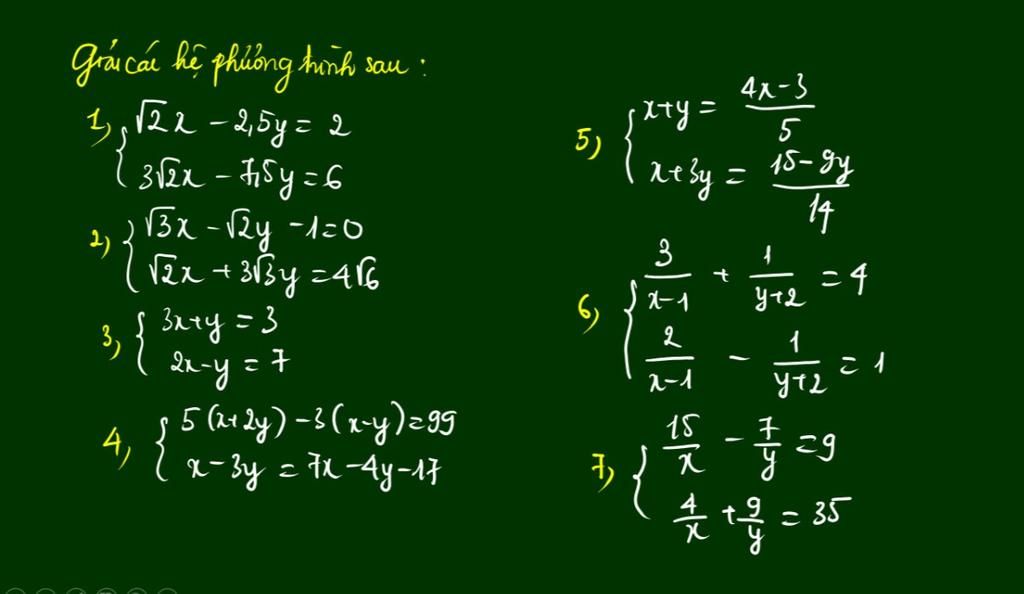 Giải các hệ phương trình sau :
1, { √2x - 2,5y = 2
3√2x - 7,5y = 6
2, { √3x - √2y - 1 = 0
√2x + 3√3y = 4√6
3, { 3x+y = 3
2x-y = 7
4, { 5(x+2y) - 3(x-y) = 99
x - 3y = 7x - 4y - 17
5) { x+y = (4x-3)/5
x+3y = (15-9y)/14
6, { 3/(x-1) + 1/(y+2) = 4
2/(x-1) - 1/(y+2) = 1
7, { 15/x - 7/y = 9
4/x + 9/y = 35